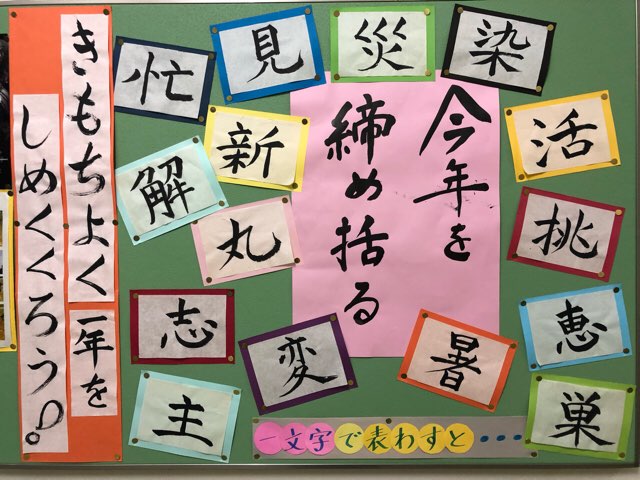 きもちよく一年を
しめくくろう。
今年を
締め括る
一文字で表わすと・・・・
忙
見
災
染
新
活
解
丸
挑
志
変
暑
恵
主
巣